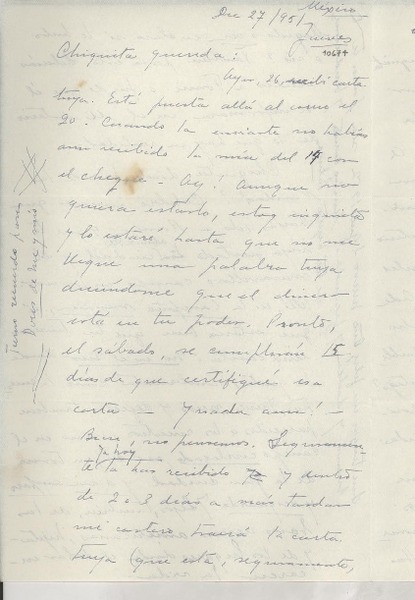 Dic 27/951 México
Jueves
10674
Chiquita querida:
Ayer, 26, recibí carta
tuya. Está puesta allá al correo el
20. Cuando la enviaste no habías
aun recibido la mía del 14 con
el cheque. Ay! Aunque no
quiera estarlo, estoy inquieta
y lo estaré hasta que no me
llegue una palabra tuya
diciéndome que el dinero
está en tu poder. Pronto,
el sábado, se cumplirán 15
días de que certifiqué esa
carta - Y nada aun! -
Bueno, no pensemos. Seguramen-
te ya hoy la has recibido y dentro
de 2 o 3 días a más tardar
mi cartero traerá la carta
tuya (que está, seguramente,
Tierno recuerdo para
Doris de me y mío